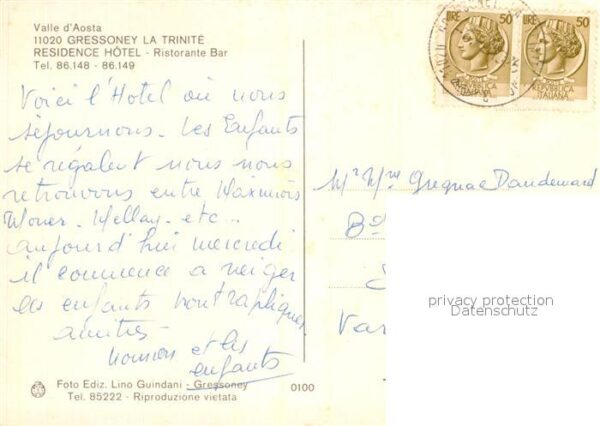 Valle d'Aosta
11020 GRESSONEY LA TRINITÉ
RESIDENCE HÔTEL - Ristorante Bar
Tel. 86.148 - 86.149
LIRE 50
LIRE 50
REPUBBLICA
ITALIANA
REPUBBLICA
ITALIANA
Voici l'Hotel où nous
séjournons. Les Enfants
se régalent nous nous
retrouvons entre
etc...
aujourd'hui mercredi
il commence a neiger
les enfants sont
amitiés
et les
enfants
Mr Mme
Var
privacy protection
Datenschutz
Foto Ediz. Lino Guindani - Gressoney
0100
Tel. 85222 - Riproduzione vietata